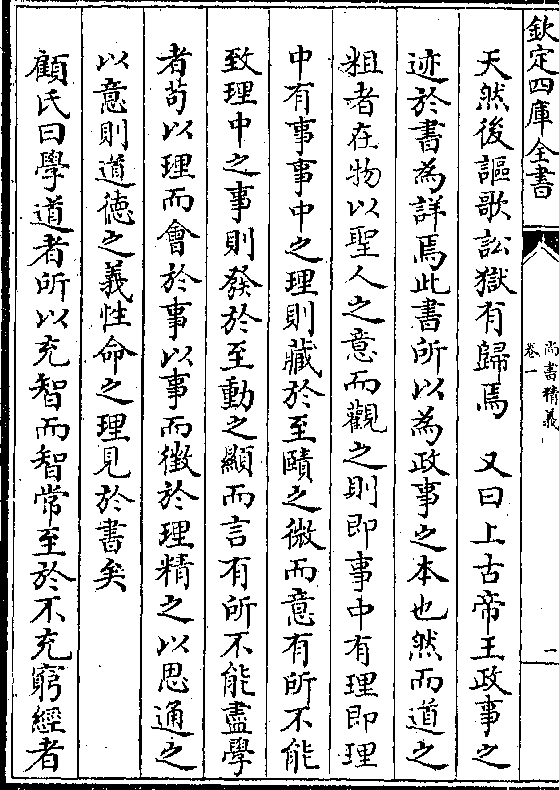 欽定四庫全書
尚書精義
卷一
一
天然後謳歌訟獄有歸焉　又曰上古帝王政事之
迹於書為詳焉此書所以為政事之本也然而道之
粗者在物以聖人之意而觀之則即事中有理即理
中有事事中之理則藏於至賾之微而意有所不能
致理中之事則發於至動之顯而言有所不能盡學
者茍以理而會於事以事而徴於理精之以思通之
以意則道德之義性命之理見於書矣
顧氏曰學道者所以充智而智常至於不充窮經者